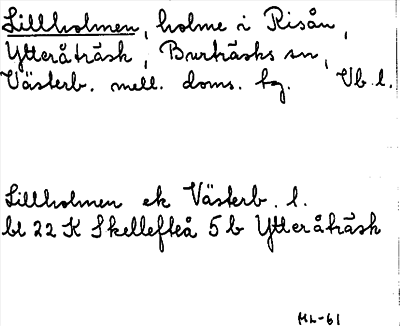 Lillholmen, holme i Risån,
Ytteråträsk, Burträsks sn,
Västerb. mell. doms. tg. Vb. l.
Lillholmen ek Västerb. l.
bl 22 K Skellefteå 5 b Ytteråträsk
HL-61